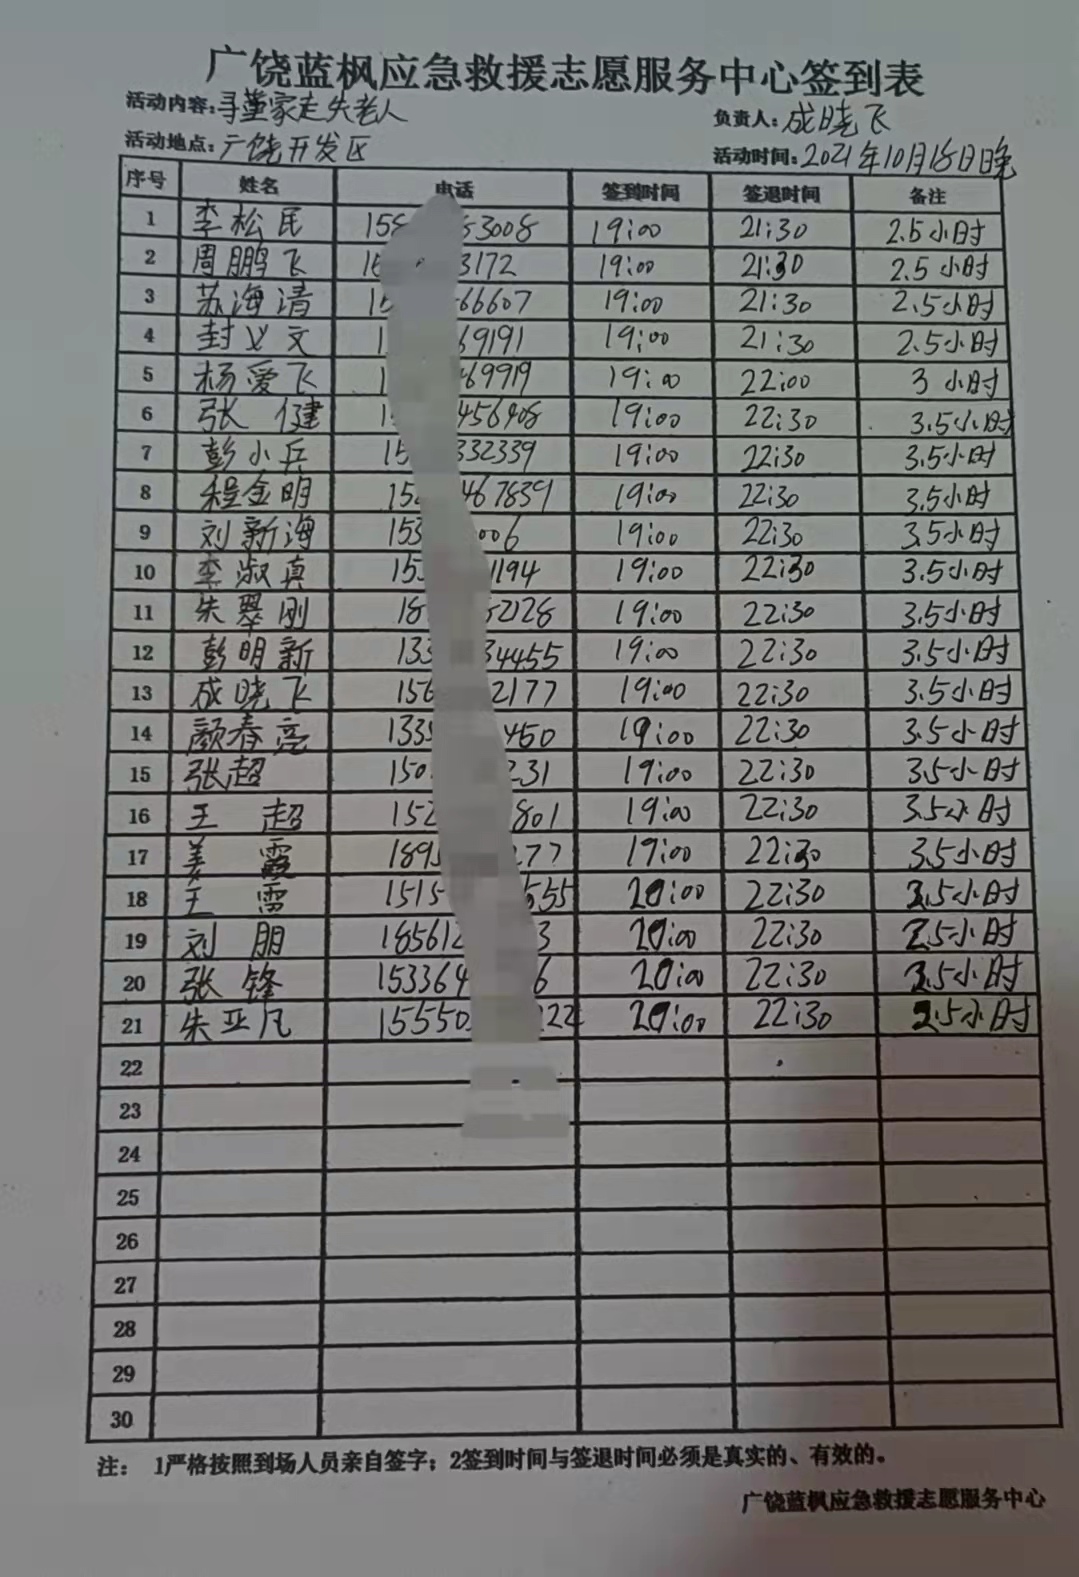 广饶蓝枫应急救援志愿服务中心签到表
活动内容：寻董家走失老人 负责人：成晓飞
活动地点：广饶开发区 活动时间：2021年10月18日晚
序号 姓名 电话 签到时间 签退时间 备注
1 李松民 158 53008 19:00 21:30 2.5小时
2 周鹏飞 15 3172 19:00 21:30 2.5小时
3 苏海清 15 66607 19:00 21:30 2.5小时
4 封义文 1 69191 19:00 21:30 2.5小时
5 杨爱飞 1 469919 19:00 22:00 3小时
6 张健 15 456908 19:00 22:30 3.5小时
7 彭小兵 15 332339 19:00 22:30 3.5小时
8 程金明 152 467839 19:00 22:30 3.5小时
9 刘新海 153 006 19:00 22:30 3.5小时
10 李淑真 155 1194 19:00 22:30 3.5小时
11 朱翠刚 18 52128 19:00 22:30 3.5小时
12 彭明新 133 34455 19:00 22:30 3.5小时
13 成晓飞 156 2177 19:00 22:30 3.5小时
14 颜春亮 133 450 19:00 22:30 3.5小时
15 张超 150 231 19:00 22:30 3.5小时
16 王超 152 801 19:00 22:30 3.5小时
17 姜霞 189 277 19:00 22:30 3.5小时
18 王雷 1515 555 20:00 22:30 2.5小时
19 刘朋 18561 3 20:00 22:30 2.5小时
20 张锋 153364 6 20:00 22:30 2.5小时
21 朱亚凡 15550 222 20:00 22:30 2.5小时
22
23
24
25
26
27
28
29
30
注： 1严格按照到场人员亲自签字；2签到时间与签退时间必须是真实的、有效的。
广饶蓝枫应急救援志愿服务中心